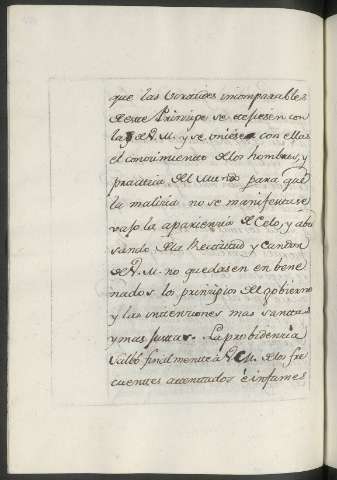 que las virtudes incomparables
de este Principe se cotejesen con
las de V. M. y se uniese con ellas
el conocimiento de los hombres, y
practica del Mundo para que
la malicia no se manifestase
vajo la apariencia de Celo, y abu
sando de la Rectitud y Candor
de V. M. no quedasen enbene
nados los principios de gobierno
y las intenciones mas sanctas
y mas Justas. La probidencia
salbó finalmente á V. M. de los fre
cuentes attentados é infames